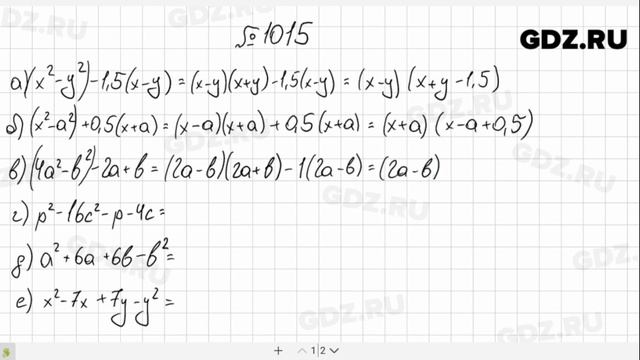 №1015
GDZ.RU
а) (x²-y²)-1,5(x-y) = (x-y)(x+y)-1,5(x-y) = (x-y) (x+y-1,5)
б) (x²-a²)+0,5(x+a) = (x-a)(x+a)+0,5(x+a) = (x+a) (x-a+0,5)
в) (4a²-b²)-2a+b = (2a-b)(2a+b)-1(2a-b) = (2a-b)
г) p²-16c²-p-4c=
д) a²+6a+6b-b²=
е) x²-7x+7y-y²=
1|2